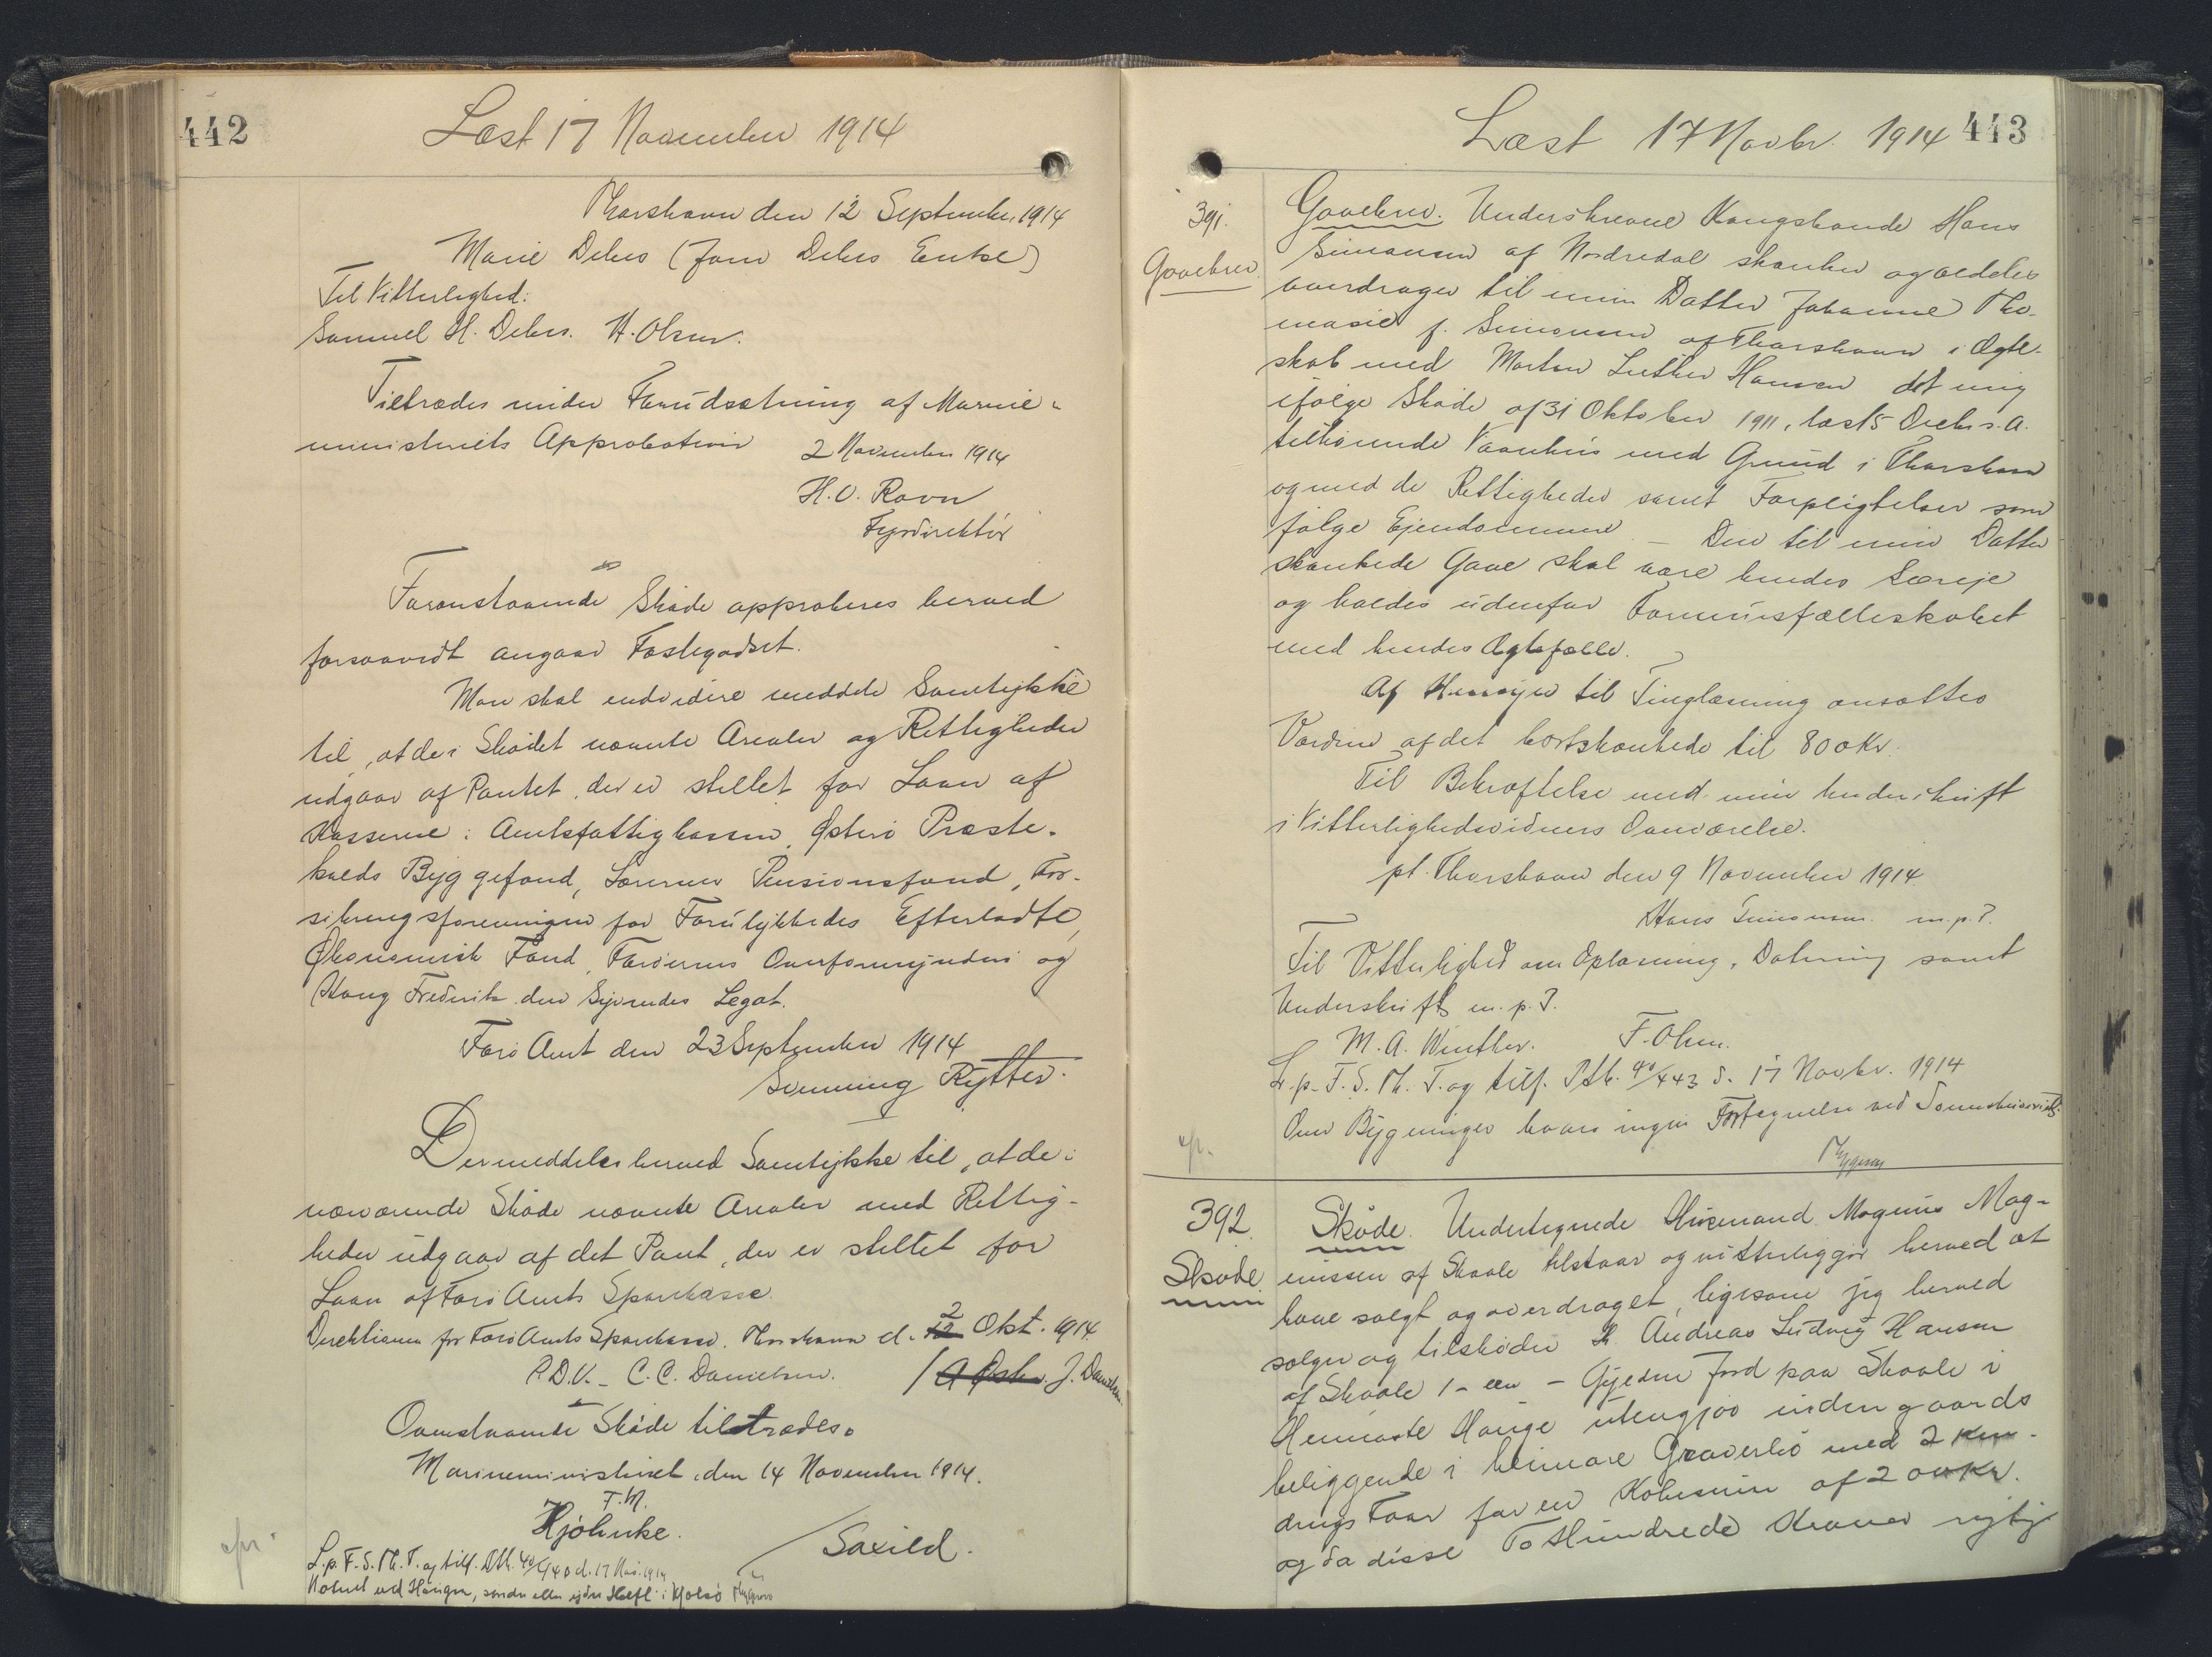 442
Læst 17 November 1914
Thorshavn den 12 September 1914
Marie Debes (Joen Debes Enke)
Til Vitterlighed:
Samuel H. Debes. H. Olsen.
Tiltrædes under Forudsætning af Marine-
ministeriets Approbation
2 November 1914
H. O. Ravn
Fyrdirektør
Foranstaaende Skøde approberes herved
forsaavidt angaar Fæstegodset.
Man skal endvidere meddele Samtykke
til, at de i Skødet nævnte Arealer og Rettigheder
udgaar af Pantet, der er stillet for Laan af
Kasserne: Amtsfattigkassen, Østerø Præste-
kalds Byggefond, Lærernes Pensionsfond, For-
sikringsforeningen for Forulykkedes Efterladte,
Økonomisk Fond, Færøernes Overformynderi og
Kong Frederik den Syvendes Legat.
Færø Amt den 23 September 1914
Svenning Rytter.
Der meddeles herved Samtykke til, at de i
nærværende Skøde nævnte Arealer med Rettig-
heder udgaar af det Pant, der er stillet for
Laan af Færø Amts Sparekasse.
Direktionen for Færø Amts Sparekasse. Thorshavn d. 12 2 Okt. 1914
P.D.V. C. C. Danielsen. / J. Danielsen
Ovenstaaende Skøde tiltrædes.
Marineministeriet, den 14 November 1914.
F. M.
Hjöhnke.
/ Saxild.
L. p. F. S. Th. T. og tilf. Pth. 40/440 d. 17 Nov. 1914
Noteret ved Haugen, søndre eller ydre Helft i Nolsø
443
Læst 17 Novbr. 1914
391.
Gavebrev.
Gavebrev. Underskrevne Kongsbonde Hans
Simonsen af Nordredal skænker og ældeles
overdrager til min Datter Johanne Tho-
masie f. Simonsen af Thorshavn i Ægte-
skab med Morten Luther Hansen det mig
ifølge Skøde af 31 Oktober 1911, læst 5 Decbr s. A.
tilhørende Vaanhus med Grund i Thorshavn
og med de Rettigheder samt Forpligtelser som
følge Ejendommene. – Den til min Datter
skænkede Gave skal være hendes Særeje
og holdes udenfor Formuesfælleskabet
med hendes Ægtefælle.
Af Hensyn til Tinglæsning ansættes
Værdien af det bortskænkede til 800 Kr.
Til Bekræftelse med min Underskrift
i Vitterlighedsvidners Overværelse.
pt. Thorshavn den 9 November 1914.
Hans Simonsen m. p. P.
Til Vitterlighed om Oplæsning, Datering samt
Underskrift m. p. P.
M. A. Winther. F. Olsen.
L. p. F. S. Th. T. og tilf. Pth. 40/443 d. 17 Novbr. 1914
Om Bygninger haves ingen Fortegnelse ved
392.
Skøde
Skøde. Undertegnede Husmand Magnus Mag-
nussen af Skaale tilstaar og vitterliggør herved at
have solgt og overdraget, ligesom jeg herved
sælger og tilskøder til Andreas Ludvig Hansen
af Skaale 1 – een – Gyeden Jord paa Skaale i
Heimaste Hauge utengjoo indengaards
beliggende i heimare Graverlió med 2
drugs Faar for en Købesum af 200 Kr.
og da disse To Hundrede Kroner rigtig